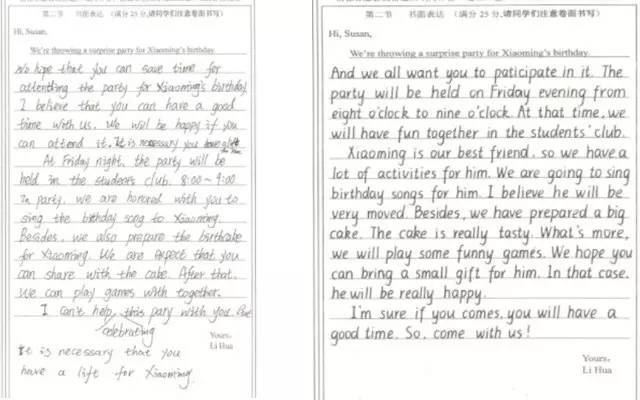 第二节 书面表达 (满分 25 分,请同学们注意卷面书写)
Hi, Susan,
We're throwing a surprise party for Xiaoming's birthday.
We hope that you can save time for
attentting the party for Xiaoming's birthday
I believe that you can have a good
time with us. We will be happy if you
can attend it. It is necessary you
At Friday night, the party will be
held in the students club. 8:00~9:00
In party, we are honored with you to
sing the birthday song to Xiaoming.
Besides, we also prepare the birthcake
for Xiaoming. We are expect that you
can share with the cake. After that,
we can play games with together.
I can't help this pary with you.
celebrating
Yours,
Li Hua
It is necessary that you
have a lift for Xiaoming.
第二节 书面表达 (满分 25 分,请同学们注意卷面书写)
Hi, Susan,
We're throwing a surprise party for Xiaoming's birthday.
And we all want you to paticipate in it. The
party will be held on Friday evening from
eight o'clock to nine o'clock. At that time, we
will have fun together in the students' club.
Xiaoming is our best friend, so we have a
lot of activities for him. We are going to sing
birthday songs for him. I believe he will be
very moved. Besides, we have prepared a big
cake. The cake is really tasty. What's more,
we will play some funny games. We hope you
can bring a small gift for him. In that case,
he will be really happy.
I'm sure if you comes, you will have a
good time. So, come with us!
Yours,
Li Hua